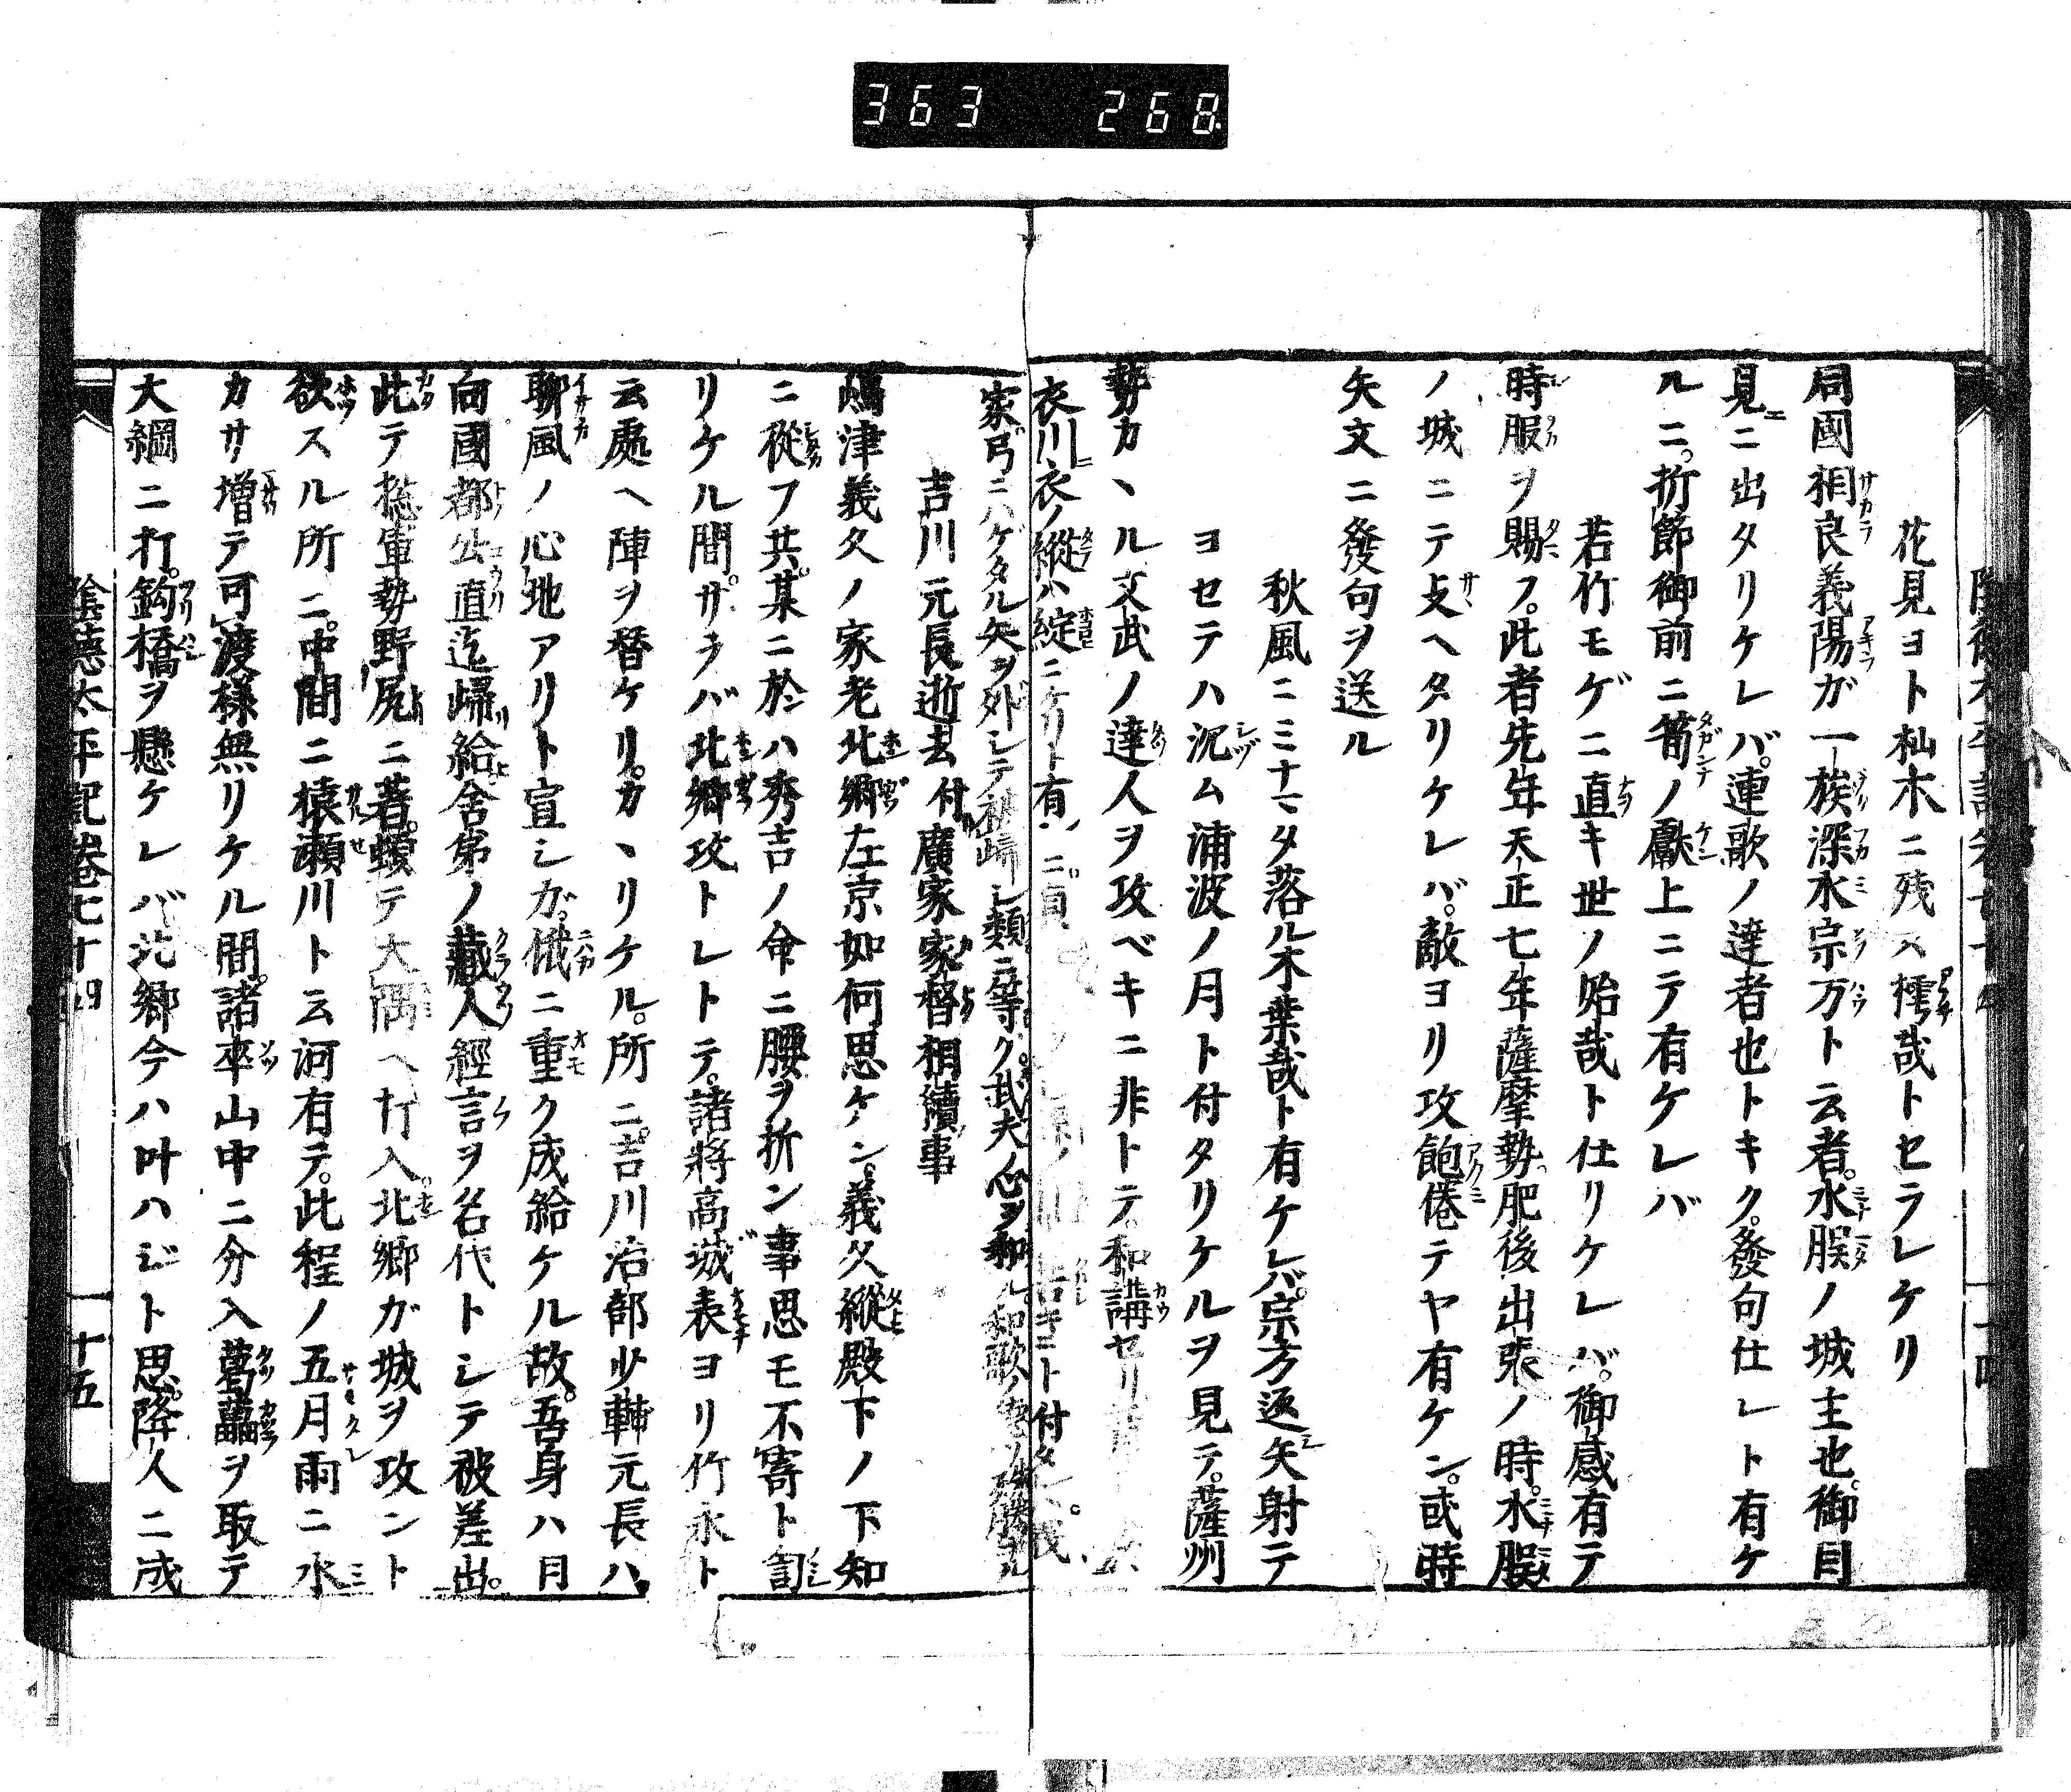 363 268
花見ヨト杣木ニ残ス櫁哉トセラレケリ
同國相良義陽ガ一族深水宗万ト云者。水股ノ城主也。御目
見ニ出タリケレバ。連歌ノ達者也トキク。發句仕レト有ケ
ルニ。折節御前ニ筍ノ獻上ニテ有ケレバ
若竹モゲニ直キ世ノ始哉ト仕リケレバ。御感有テ
時服ヲ賜フ。此者先年天正七年薩摩勢。肥後出張ノ時。水股
ノ城ニテ支ヘタリケレバ。敵ヨリ攻飽倦テヤ有ケン。或時
矢文ニ發句ヲ送ル
秋風ニミナマタ落ル木葉哉ト有ケレバ。宗方返矢射テ
ヨセテハ沉ム浦波ノ月ト付タリケルヲ見テ。薩州
勢カヽル文武ノ達人ヲ攻ベキニ非トテ。和講セリ
衣川衣ノ縱ハ綻ニケリト有シニ。貞 ト付タ
家弓ニハゲタル矢ヲ外シテ被歸シ類ニ等ク。武夫ノ心ヲ和ル和歌ノ徳ノ殊勝ナル
吉川元長逝去付廣家家督相續事
嶋津義久ノ家老北郷左京如何思ケン。義久縱殿下ノ下知
ニ從フ共。某ニ於ハ秀吉ノ命ニ腰ヲ折ン事思モ不寄ト訇
リケル間。サラバ北郷攻トレトテ。諸將高城表ヨリ竹永ト
云處ヘ陣ヲ替ケリ。カヽリケル。所ニ吉川治部少輔元長ハ。
聊風ノ心地アリト宣シガ。俄ニ重ク成給ケル故。吾身ハ月
向國都公直迄歸給。舎弟ノ藏人經言ヲ名代トシテ被差出。
此テ惣軍勢野尻ニ著。蝬テ大隅ヘ打入。北郷ガ城ヲ攻ント
欲スル所ニ。中間ニ猿瀬川ト云河有テ。此程ノ五月雨ニ水
カサ増テ可渡様無リケル間。諸卒山中ニ分入葛藟ヲ取テ
大綱ニ打。鈎橋ヲ懸ケレバ北郷今ハ叶ハジト思。降人ニ成
陰徳太平記卷七十四 十五